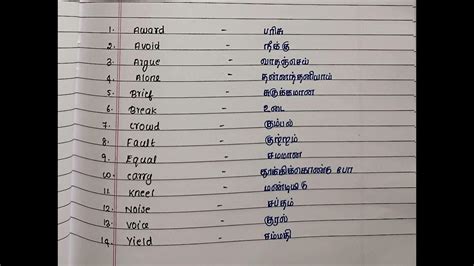 1. Award - பரிசு
2. Avoid - நீக்கு
3. Argue - வாதஞ்செய்
4. Alone - தன்னந்தனியாய்
5. Brief - சுருக்கமான
6. Break - உடை
7. Crowd - கும்பல்
8. Fault - குற்றம்
9. Equal - சமமான
10. Carry - தூக்கிக்கொண்டு போ
11. Kneel - மண்டியிடு
12. Noise - சப்தம்
13. Voice - குரல்
14. Yield - சம்மதி